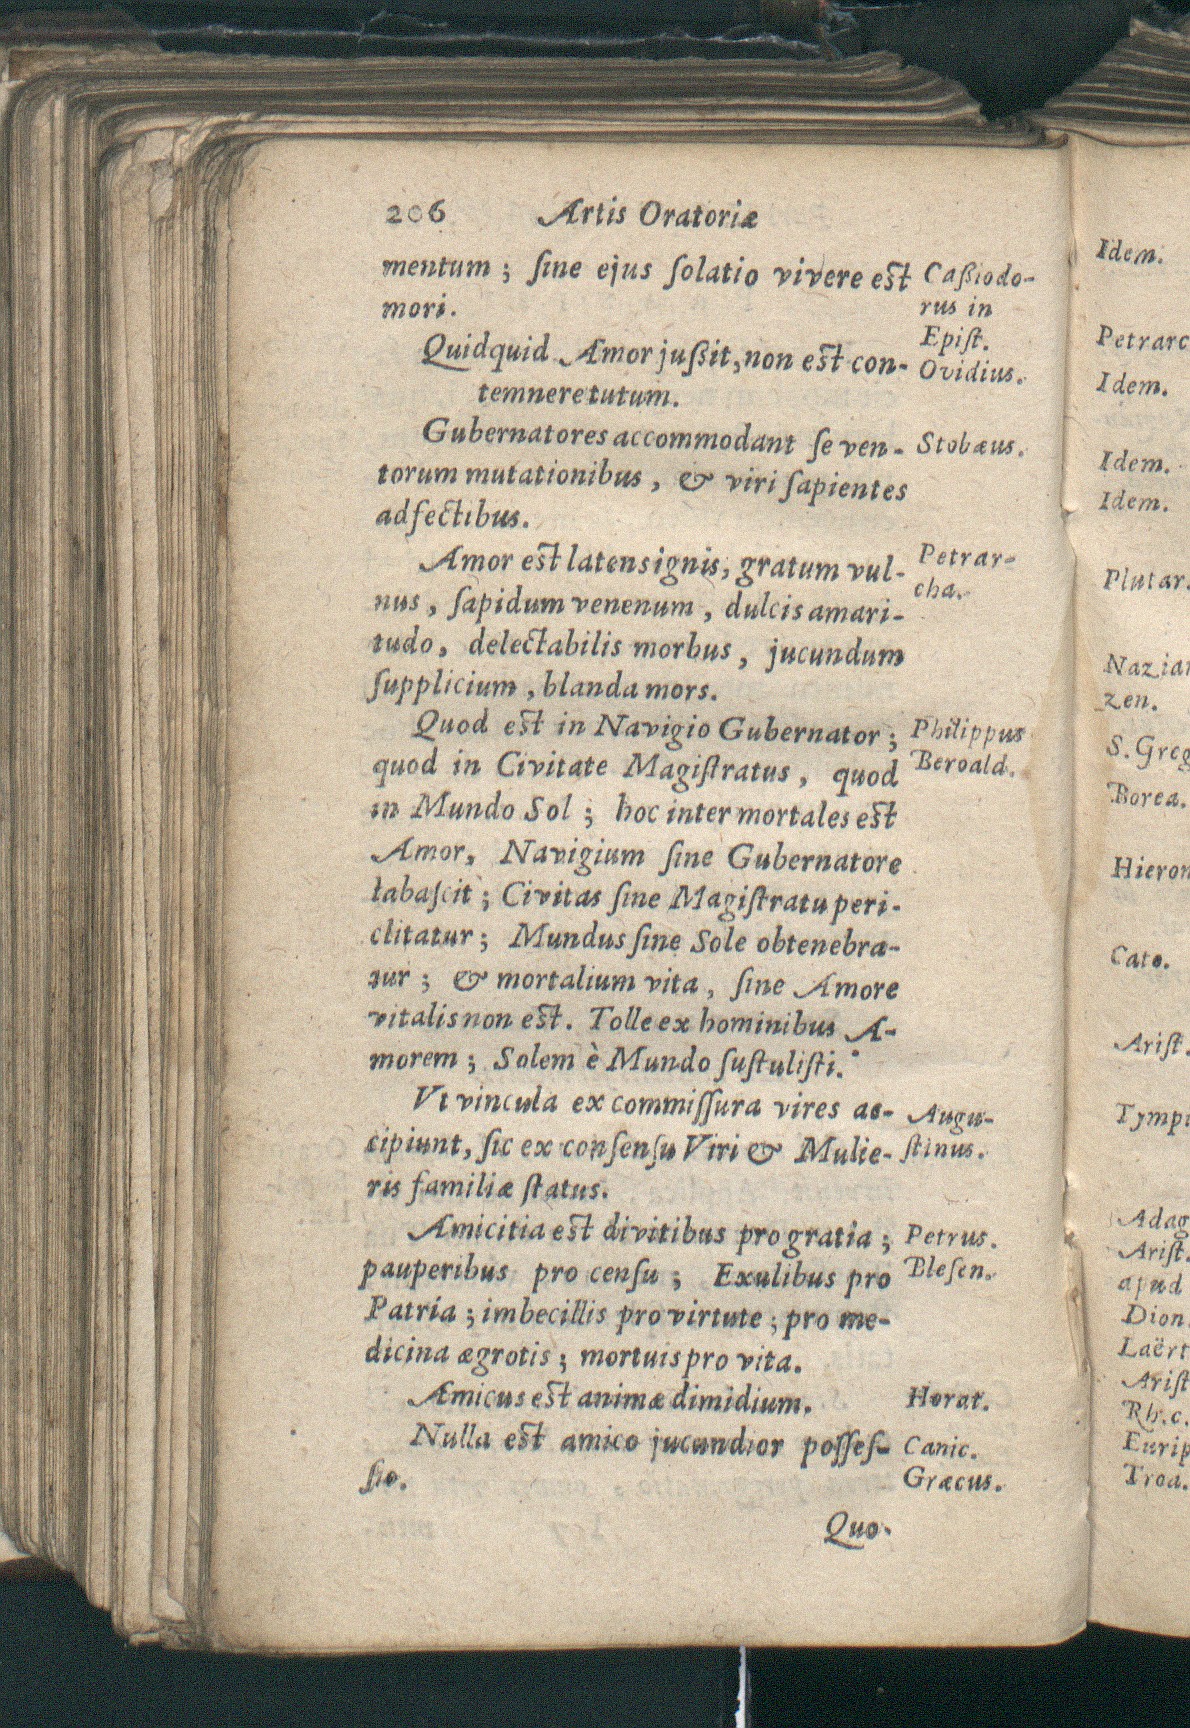 206 Artis Oratoriæ
mentum ; ſine ejus ſolatio vivere est
mori.
Caßiodo-
rus in
Epiſt.
Quidquid Amor jußit, non est con-
temnere tutum.
Ovidius.
Gubernatores accommodant ſe ven-
torum mutationibus, & viri ſapientes
adfectibus.
Stobæus.
Amor est latens ignis, gratum vul-
nus, ſapidum venenum, dulcis amari-
tudo, delectabilis morbus, jucundum
ſupplicium, blanda mors.
Petrar-
cha.
Quod est in Navigio Gubernator ;
quod in Civitate Magiſtratus, quod
in Mundo Sol ; hoc inter mortales est
Amor, Navigium ſine Gubernatore
labaſcit ; Civitas ſine Magiſtratu peri-
clitatur ; Mundus ſine Sole obtenebra-
tur ; & mortalium vita, ſine Amore
vitalis non est. Tolle ex hominibus A-
morem ; Solem è Mundo ſuſtuliſti.
Philippus
Beroald.
Vt vincula ex commiſſura vires ac-
cipiunt, ſic ex conſenſu Viri & Mulie-
ris familiæ ſtatus.
Augu-
ſtinus.
Amicitia est divitibus pro gratia ;
pauperibus pro cenſu ; Exulibus pro
Patria ; imbecillis pro virtute ; pro me-
dicina ægrotis ; mortuis pro vita.
Petrus.
Bleſen.
Amicus est animæ dimidium.
Horat.
Nulla est amico jucundior poſſeſ-
ſio.
Canic.
Græcus.
Quo-
Idem.
Petrarc
Idem.
Idem.
Idem.
Plutar.
Nazian
zen.
S. Greg
Borea.
Hieron
Cato.
Ariſt.
Tympi
Adag
Ariſt.
apud
Dion.
Laërt
Ariſt
Rh. c.
Eurip
Troa.